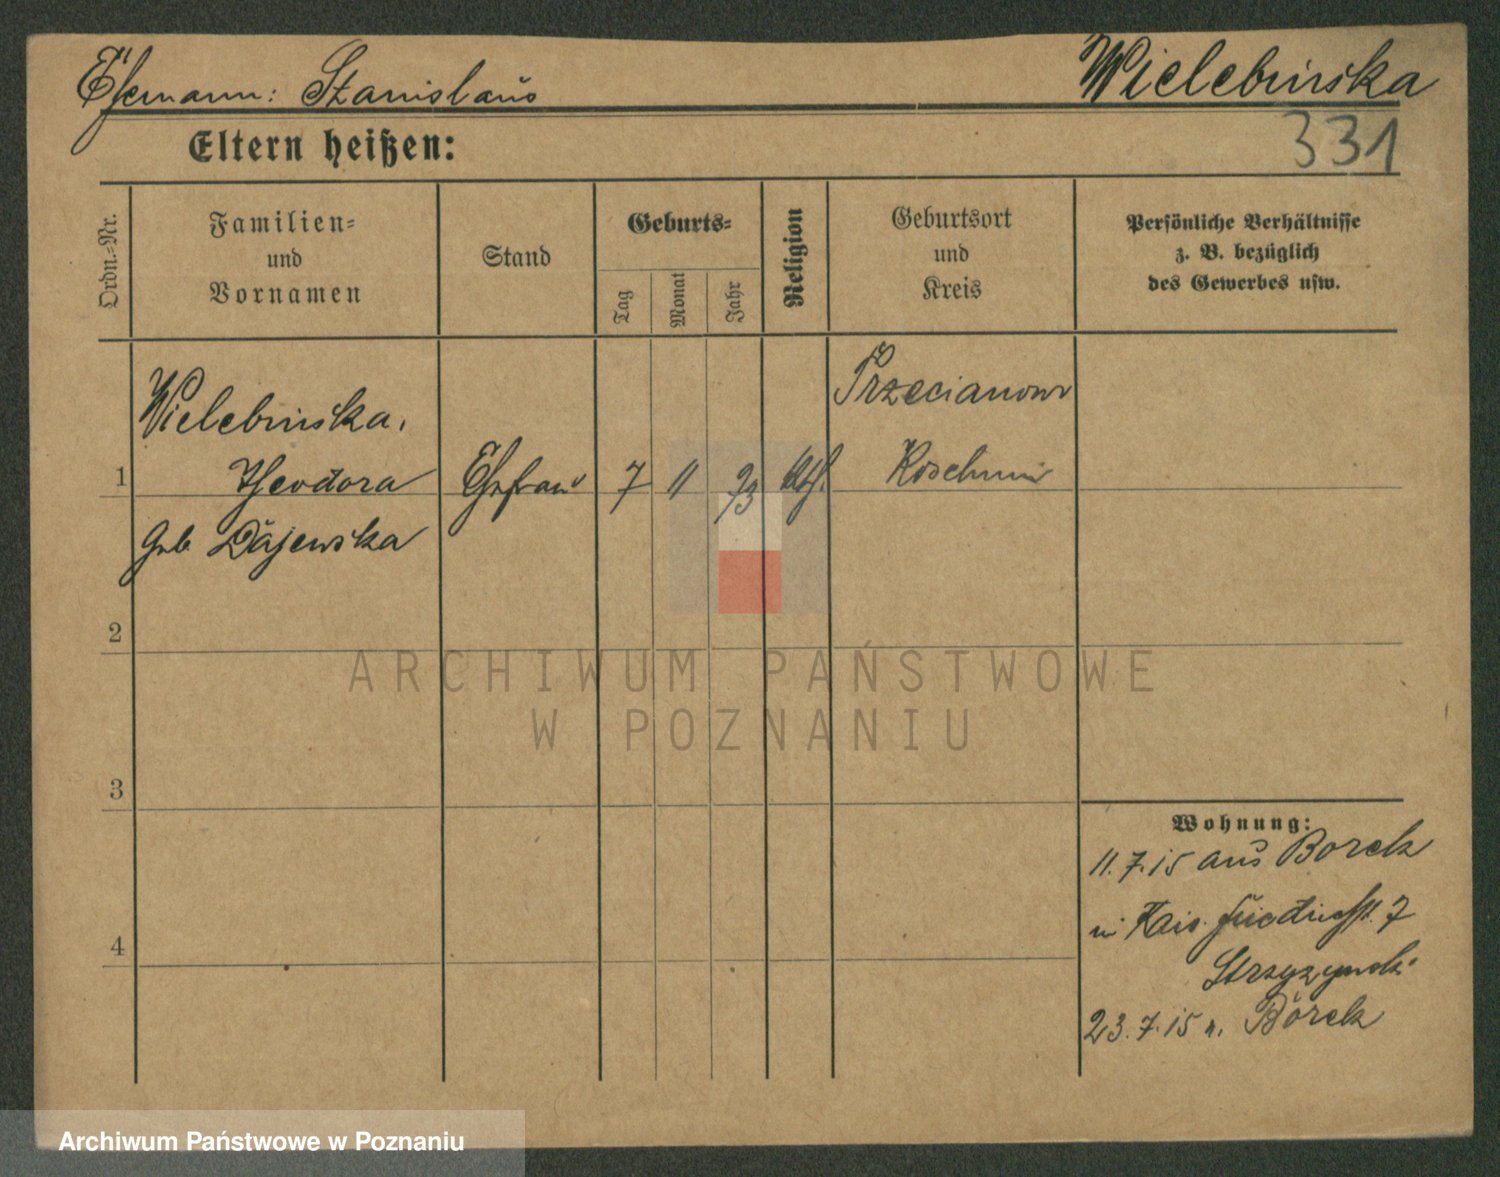 Ehemann: Stanislaus
Wielebinska
331
Eltern heißen:
Ordn.-Nr.
Familien-
und
Vornamen
Stand
Geburts-
Tag
Monat
Jahr
Religion
Geburtsort
und
Kreis
Persönliche Verhältnisse
z. B. bezüglich
des Gewerbes usw.
Wielebinska,
1 Theodora Ehefrau 7 11 93 kth.
geb. Dajewska
Trzecianowo
Koschmin
2
3
4
Wohnung:
11.7.15 aus Borek
in Kais. Friedrichst. 7
23.7.15 n. Borek
ARCHIWUM PAŃSTWOWE
W POZNANIU
Archiwum Państwowe w Poznaniu